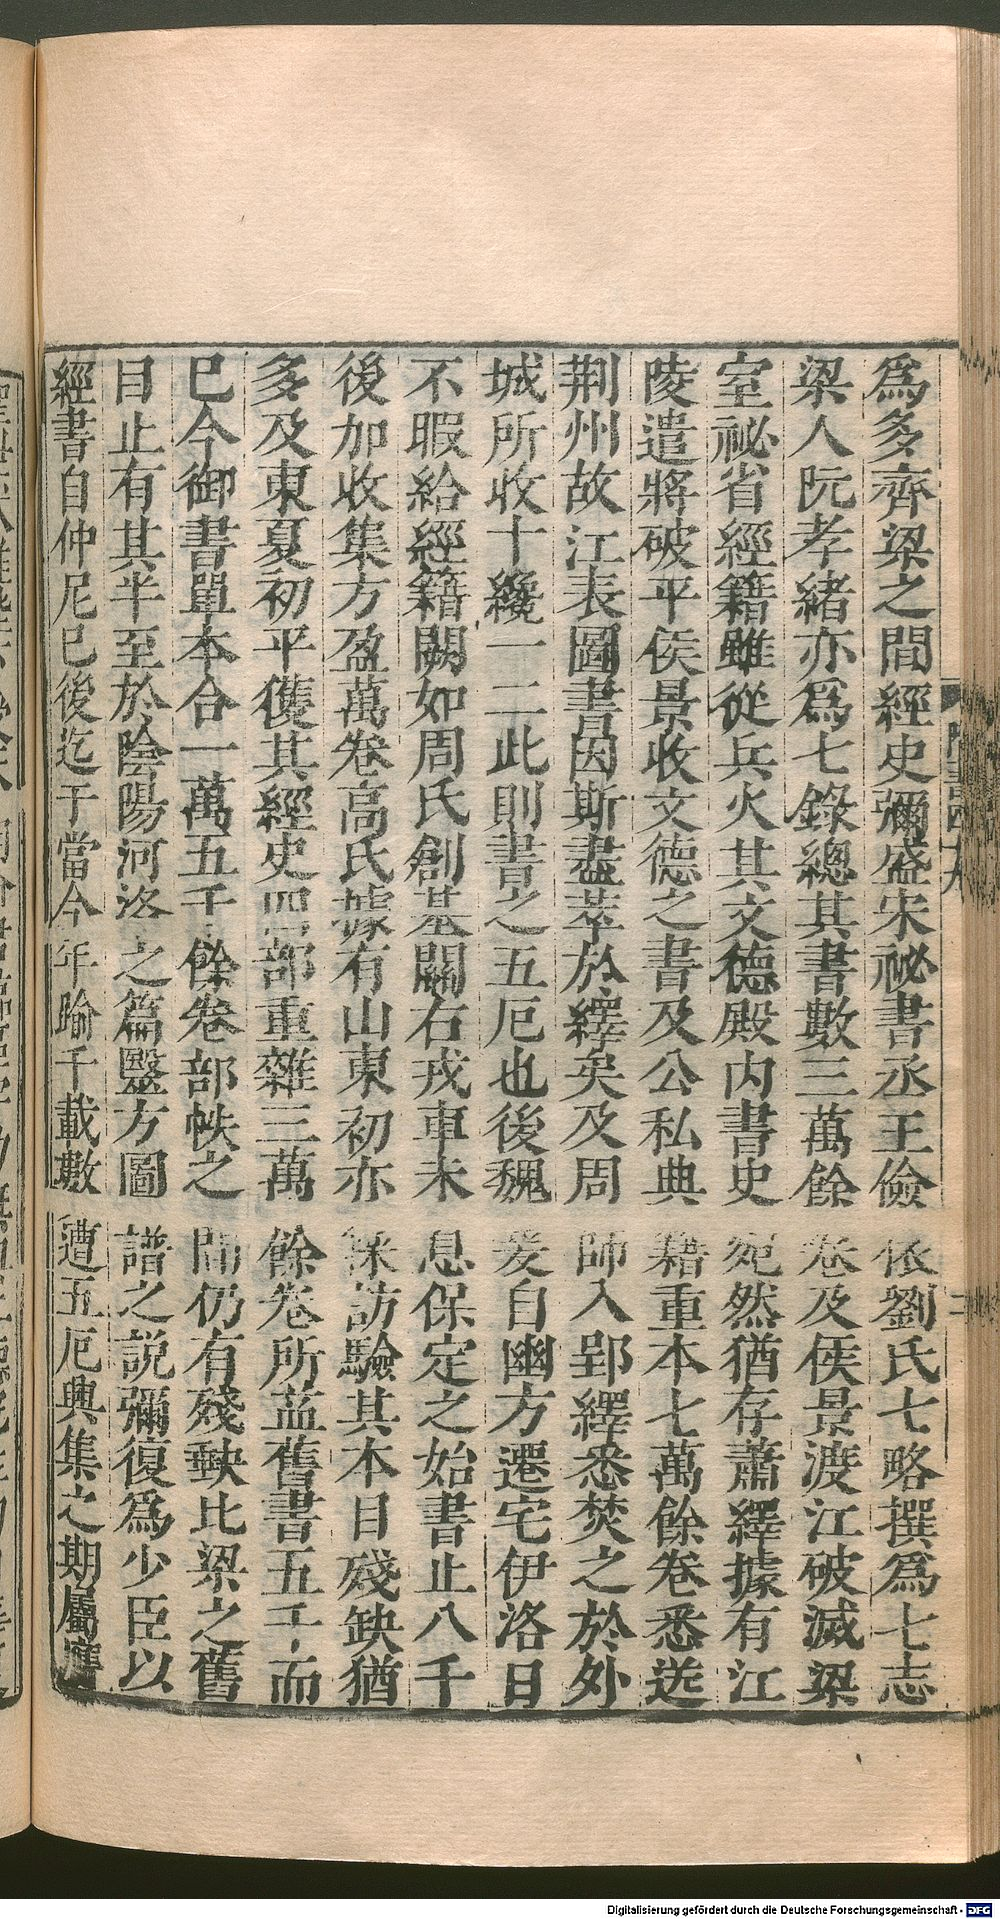 爲多齊梁之間經史彌盛宋祕書丞王儉依劉氏七略撰爲七志
梁人阮孝緒亦爲七錄總其書數三萬餘卷及侯景渡江破滅梁
室祕省經籍雖從兵火其文德殿內書史宛然猶存蕭繹據有江
陵遣將破平侯景收文德之書及公私典籍重本七萬餘卷悉送
荆州故江表圖書因斯盡萃於繹矣及周師入郢繹悉焚之於外
城所收十纔一二此則書之五厄也後魏爰自幽方遷宅伊洛日
不暇給經籍闕如周氏創基關右戎車未息保定之始書止八千
後加收集方盈萬卷高氏據有山東初亦採訪驗其本目殘缺猶
多及東夏初平獲其經史四部重雜三萬餘卷所益舊書五千而
已今御書單本合一萬五千餘卷部帙之間仍有殘缺比梁之舊
目止有其半至於陰陽河洛之篇醫方圖譜之說彌復爲少臣以
經書自仲尼已後迄于當今年踰千載數遭五厄興集之期屬膺
Digitalisierung gefördert durch die Deutsche Forschungsgemeinschaft - DFG